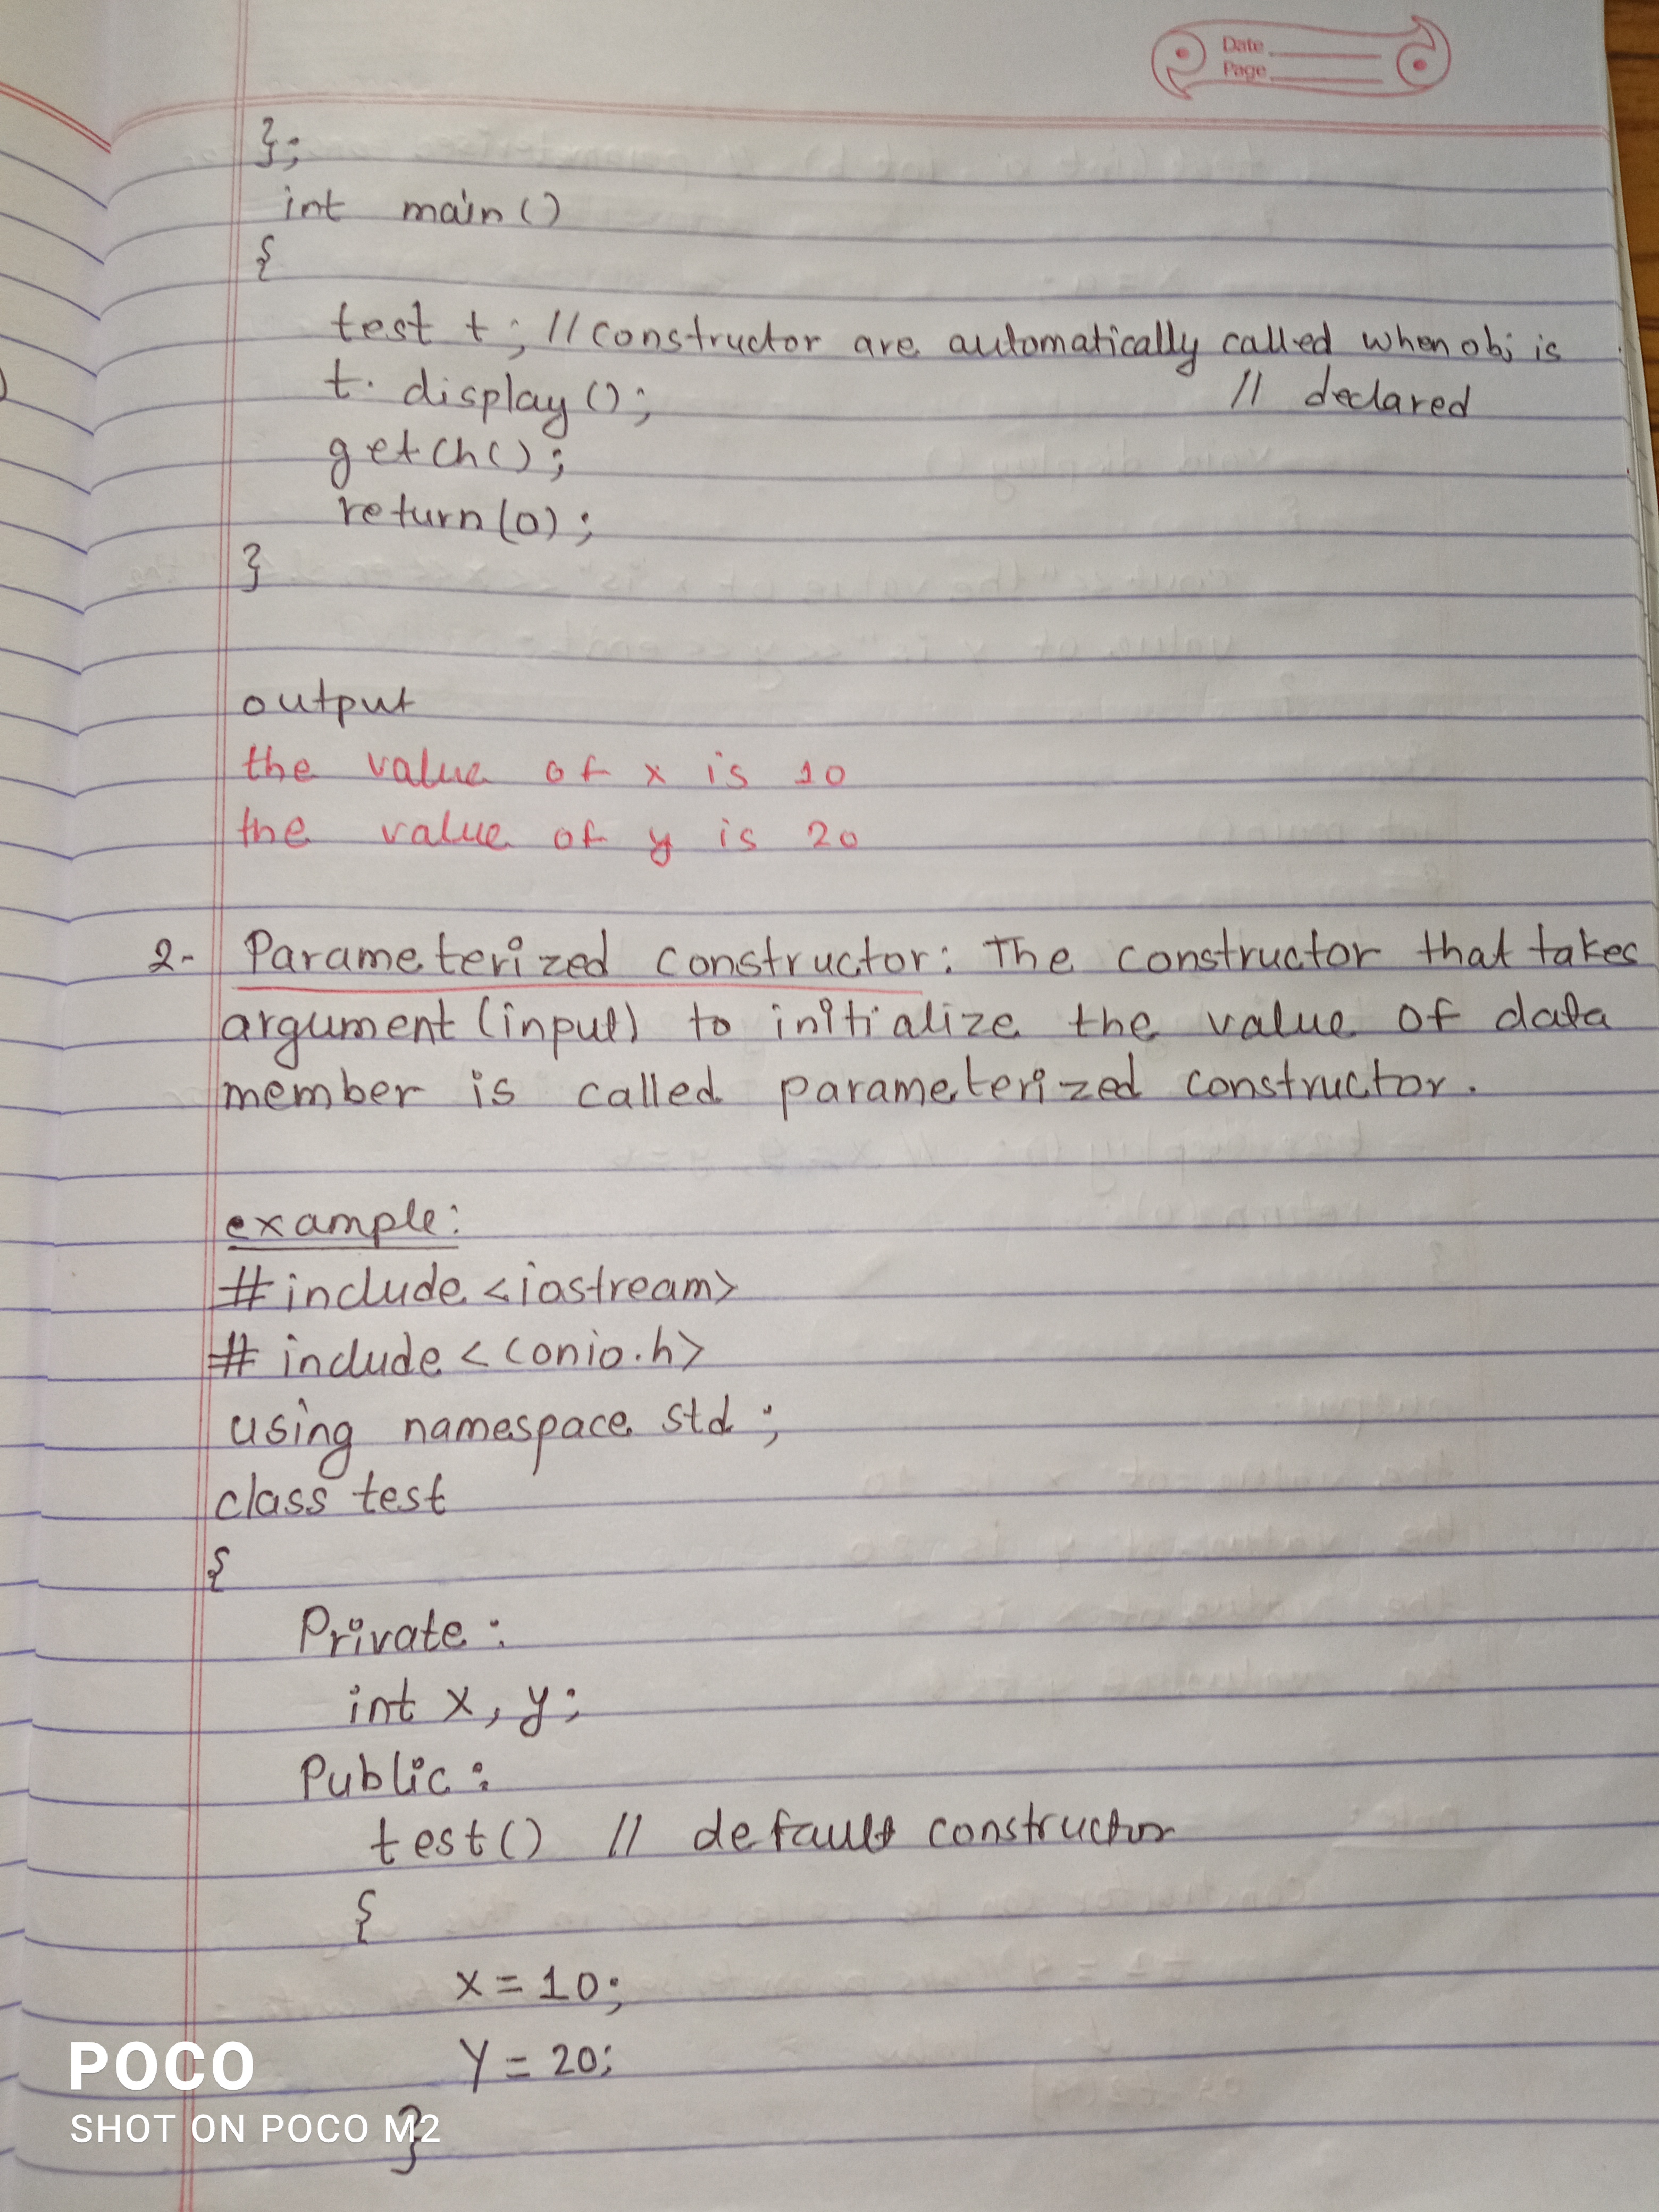 Date
Page
};
int main()
{
test t; // constructor are automatically called when obj is
t. display(); // declared
getch();
return(0);
}
output
the value of x is 10
the value of y is 20
2- Parameterized constructor: The constructor that takes
argument (input) to initialize the value of data
member is called parameterized constructor.
example:
# include <iostream>
# include <conio.h>
using namespace std;
class test
{
Private:
int x, y;
Public:
test() // default constructor
{
x = 10;
Y = 20;
}
POCO
SHOT ON POCO M2